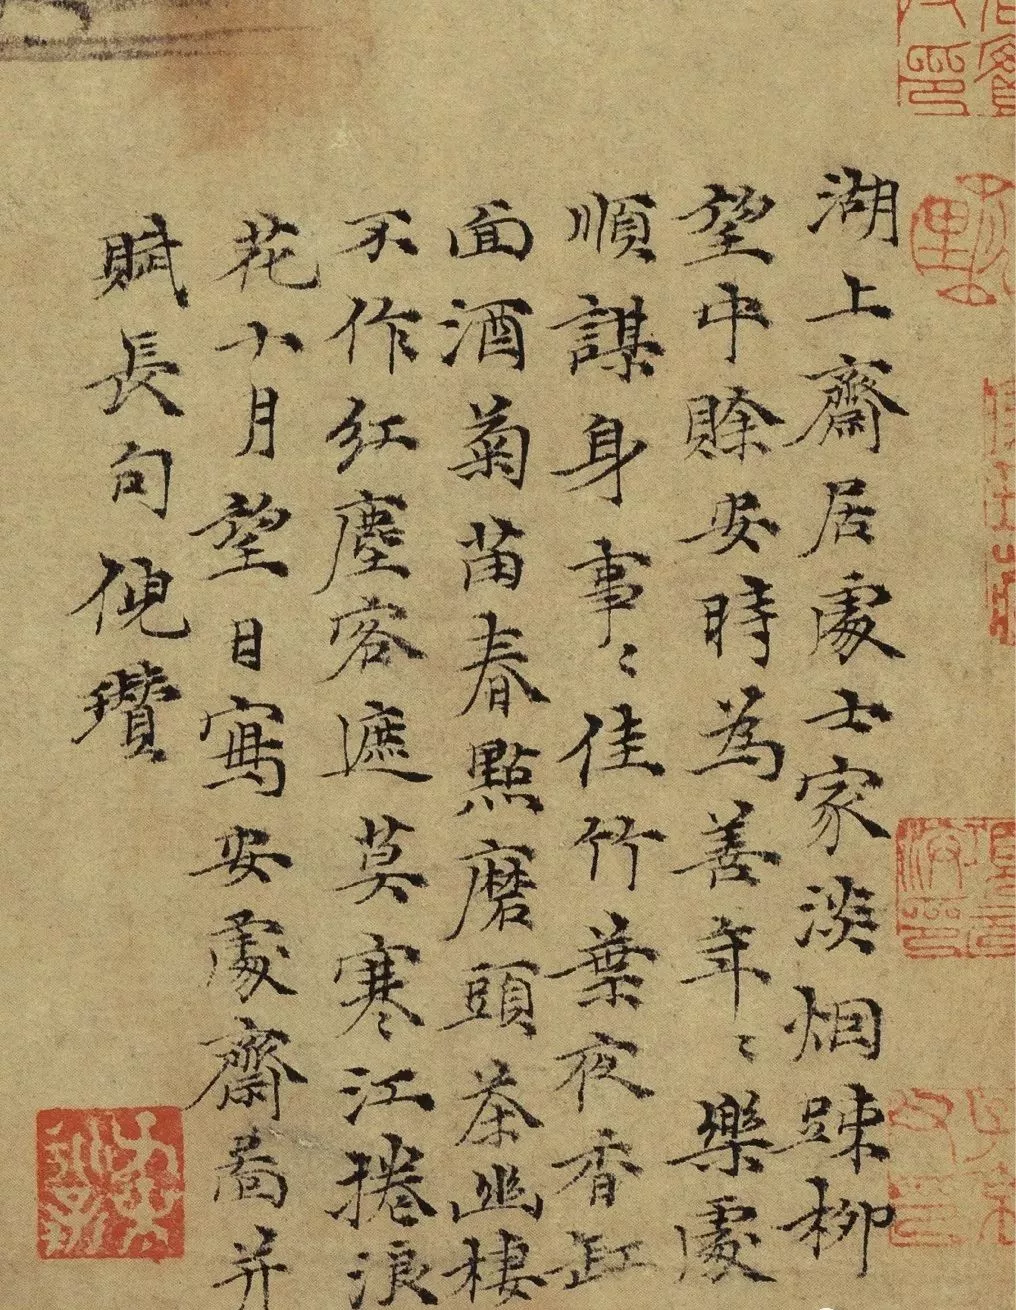 湖上齋居處士家淡烟踈柳
望中賒安時為善年〻樂處
順謀身事〻佳竹葉夜香缸
面酒菊苗春點磨頭茶幽棲
不作紅塵客遮莫寒〻江捲浪
花十月望日寫安處齋啚并
賦長句倪瓚